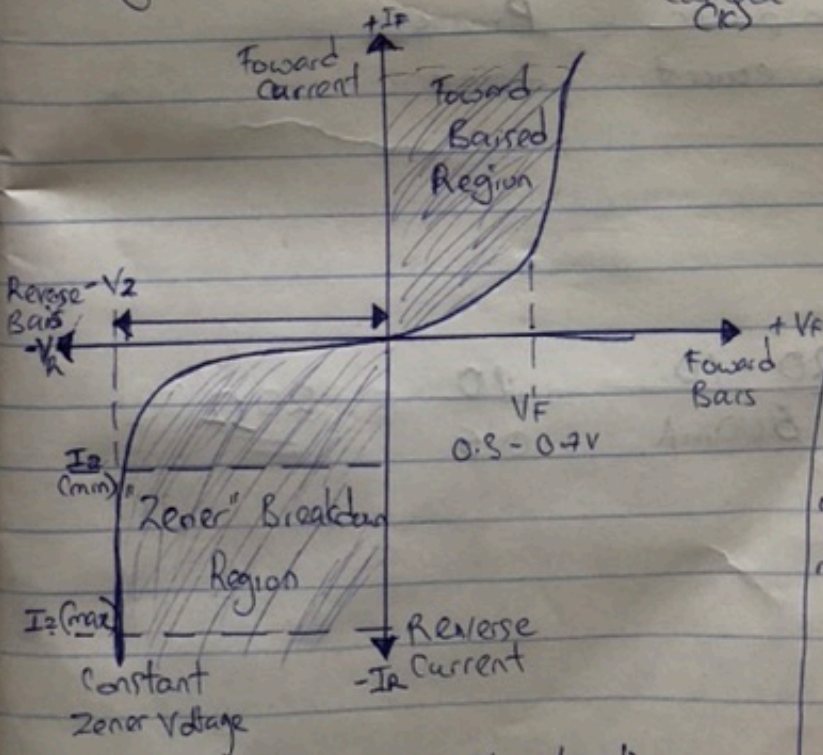 (K)
+IF
Foward
Current
Foward
Baised
Region
Reverse
Bais
-Vz
-VR
+ VF
Foward
Bars
VF
0.3 - 0.7V
Iz
(min)
"Zener" Breakdown
Region
Iz(max)
Reverse
Current
-IR
Constant
Zener Voltage